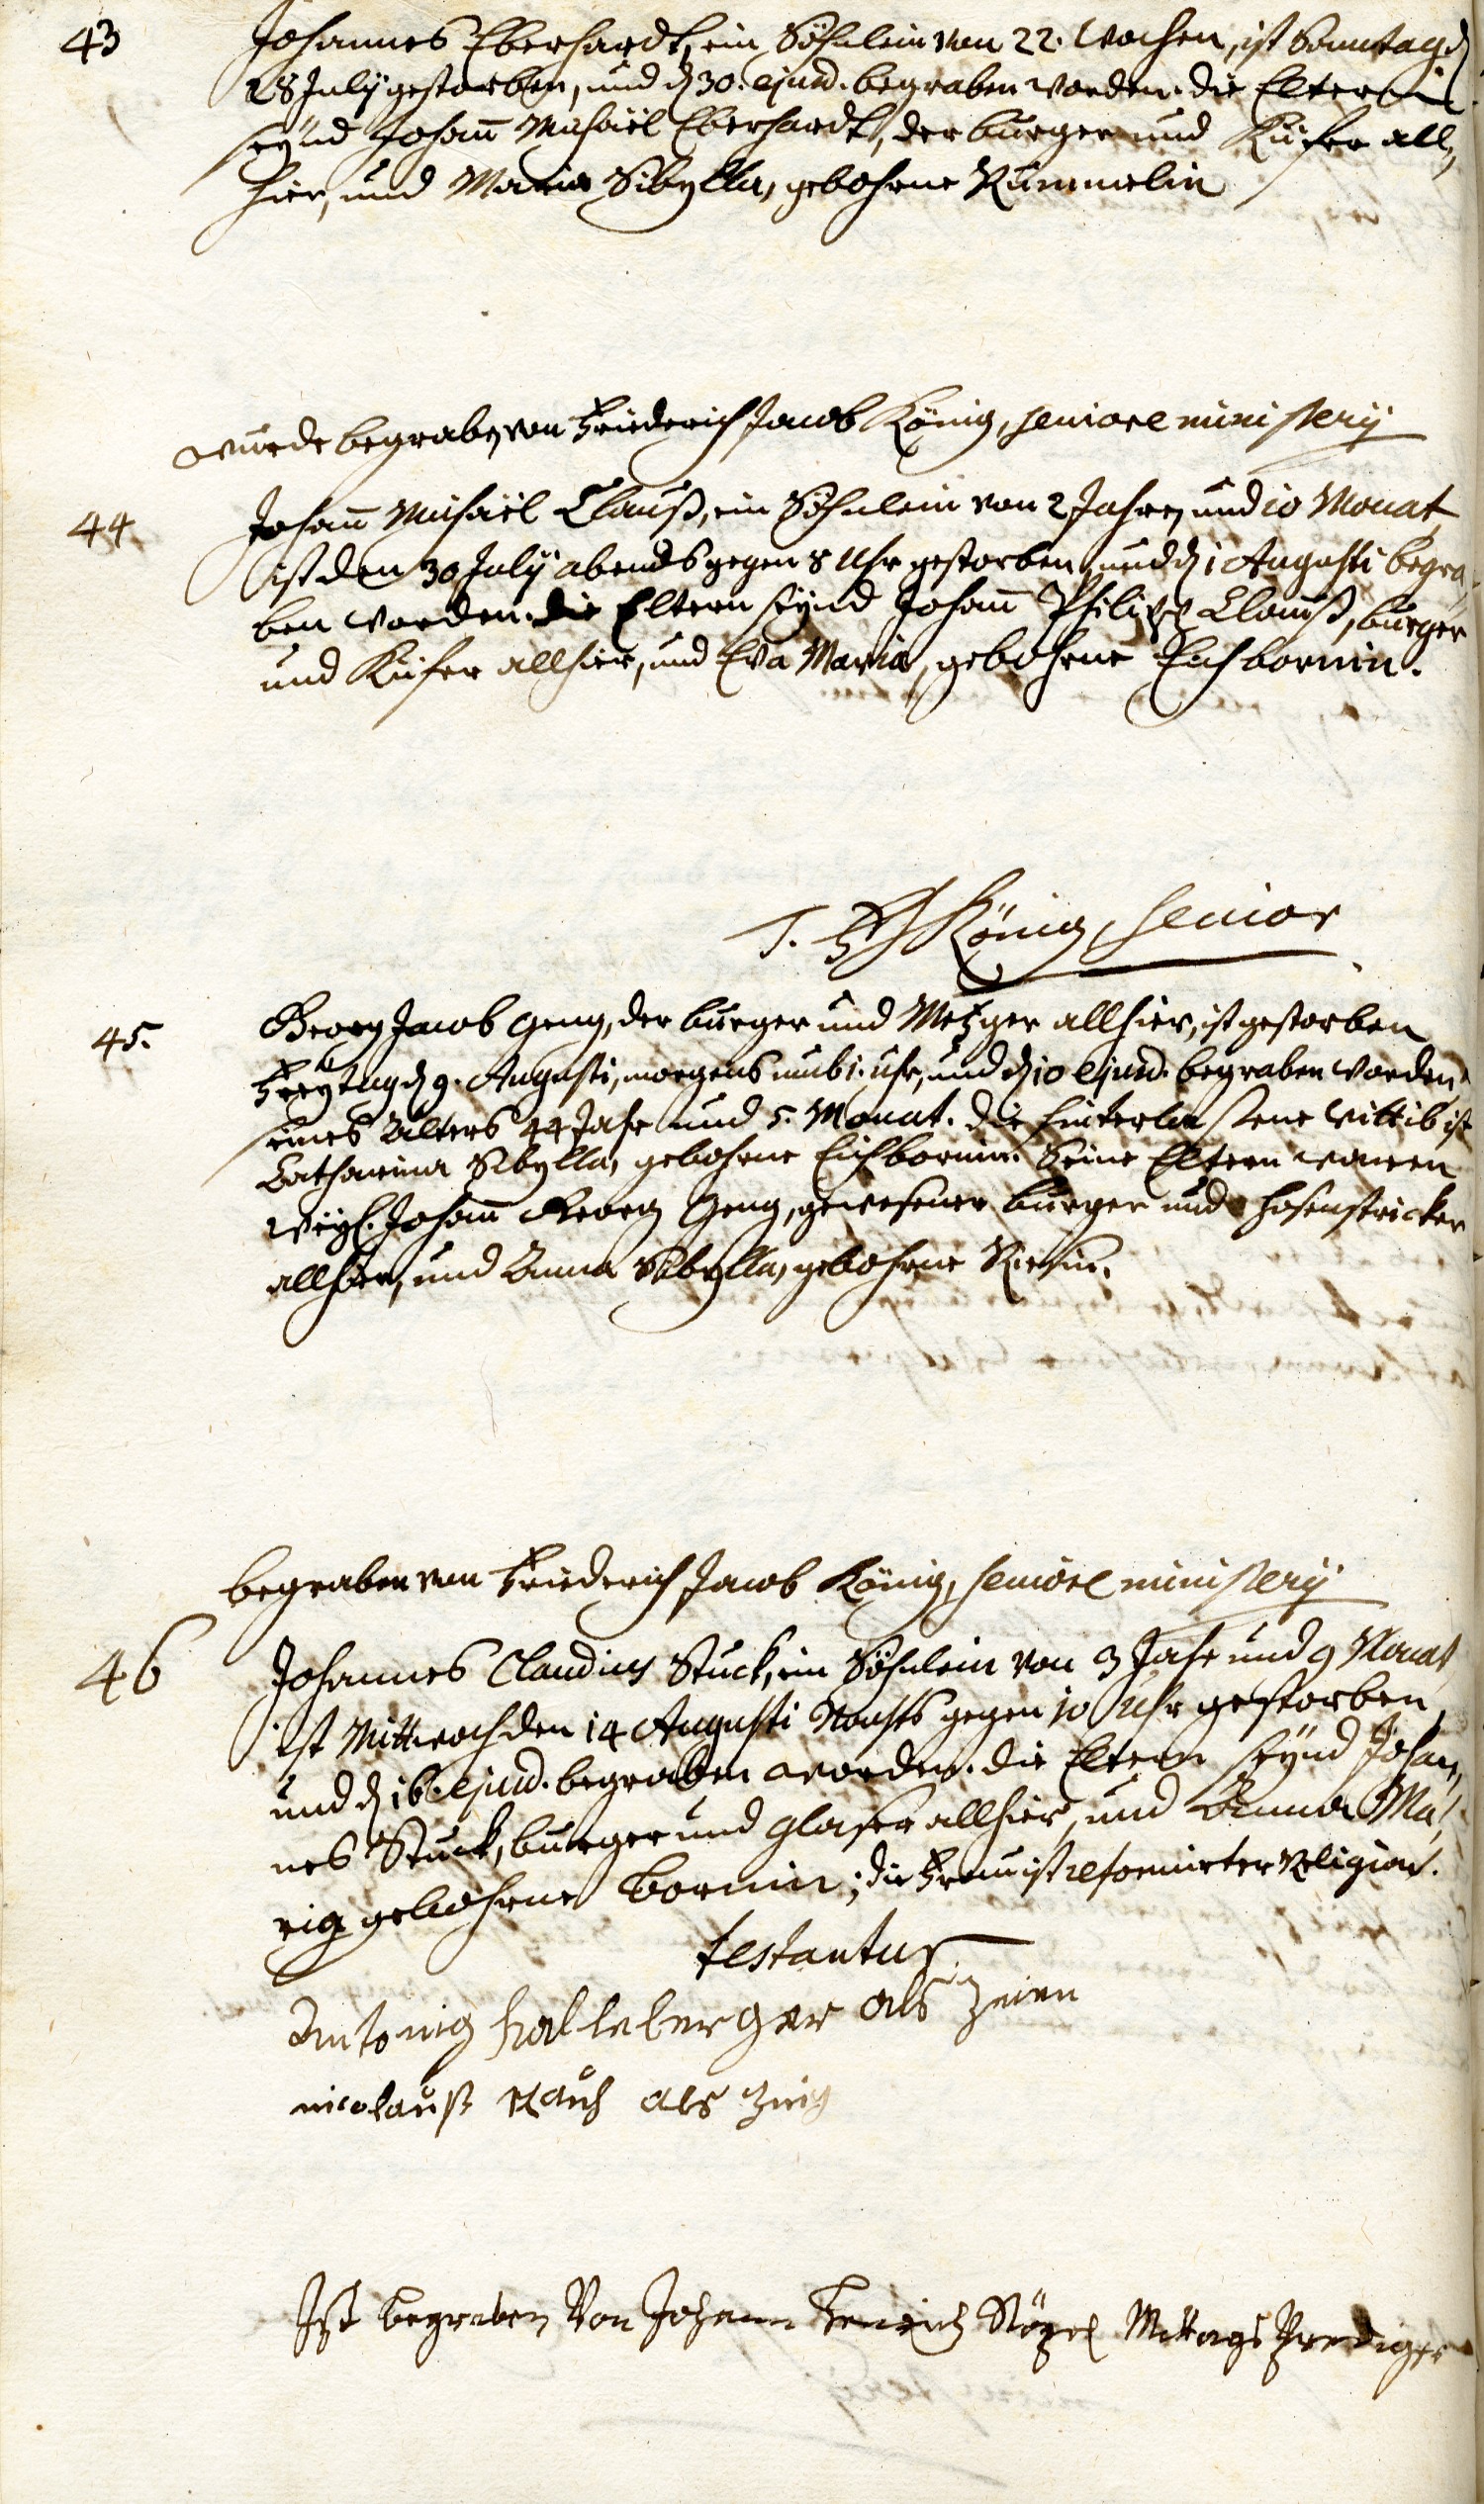 43 Johannes Eberhardt, ein Söhnlein von 22. Wochen, ist Sonntag d
28 July gestorben, und d 30. ejusd. begraben worden. die Eltern
seynd Johañ Michaël Eberhardt, der burger und Küfer all,
hier, und Maria Sibylla, gebohrne Rümmelin
wurde begraben von Friederich Jacob König, seniore ministerij
44 Johañ Michaël Clauß, ein Söhnlein von 2 Jahren und 10 Monat,
ist den 30 July abends gegen 8 Uhr gestorben und d 1 Augusti begra,
ben worden. die Eltern seynd Johañ Philipp Clauß, burger
und Küfer allhier, und Eva Maria, gebohrne Eichbornin.
König, senior
45. Georg Jacob Geng, der burger und Metzger allhier, ist gestorben
Freytag d 9. Augusti, morgens umb 1. uhr, und d 10 ejusd. begraben worden
seines Alters 44 Jahr und 5. Monat. die hinterlassene Wittib ist
Catharina Sibylla, gebohrne Eichbornin. Seine Eltern waren
Weyl. Johañ Georg Geng, gewesener burger und hosenstricker
allhier, und Anna Sibylla, gebohrne
begraben von Friederich Jacob König, seniore ministerij
46 Johannes Claudius Stuck, ein Söhnlein von 3 Jahr und 9 Monat
ist Mittwoch den 14 Augusti Nachts gegen 10 Uhr gestorben,
und d 16. ejusd. begraben worden. die Eltern seynd Johan,
nes Stuck, burger und glaser allhier, und Anna Ma,
ria gebohrne Bornin; die Frau ist reformirter Religion.
testantur
Antonig halleberger als
nicolauß Rauch als
Ist begraben Von Johann Henrich Mittags Prediger